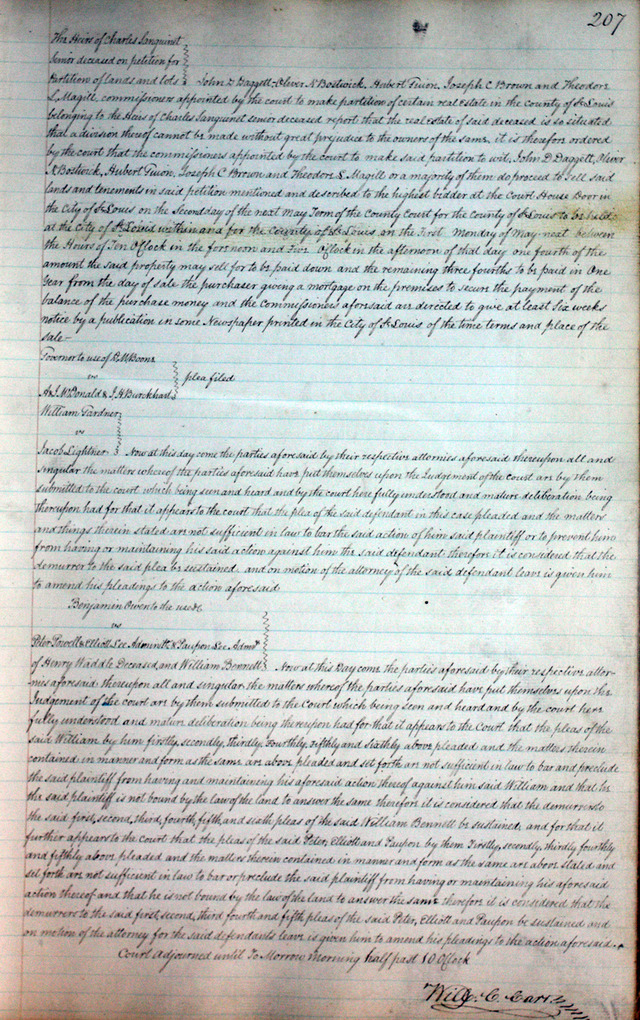 207
The Heirs of Charles Sanguinet
Senior deceased on petition for
Partition of lands and lots John D Daggett Oliver N Bostwick, Hubert Guion, Joseph C Brown and Theodore
L. Magill, commissioners appointed by the court to make partition of certain real estate in the county of St Louis
belonging to the Heirs of Charles Sanguinet senior deceased report that the real estate of said deceased is so situated
that a division thereof cannot be made without great prejudice to the owners of the same, it is therefore ordered
by the court that the commissioners appointed by the court to make said partition to wit, John D Daggett, Oliver
N Bostwick, Hubert Guion, Joseph C Brown and Theodore L Magill or a majority of them do proceed to sell said
lands and tenements in said petition mentioned and described to the highest bidder at the Court House Door in
the City of St Louis on the Second day of the next May Term of the County Court for the County of St Louis to be held
at the City of St Louis within and for the County of St Louis on the First Monday of May next between
the Hours of Ten OClock in the fornoon and Five OClock in the afternoon of that day one fourth of the
amount the said property may sell for to be paid down and the remaining three fourths to be paid in One
Year from the day of sale the purchaser giving a mortgage on the premises to secure the payment of the
balance of the purchase money and the commissioners aforesaid are directed to give at least Six weeks
notice by a publication in some Newspaper printed in the City of St Louis of the time terms and place of the
sale—
Governor to use of R M Boone
vs plea filed
A & J. McDonald & J H Burckhart
William Gardner
vs
Jacob Lightner Now at this day come the parties aforesaid by their respective attornies aforesaid thereupon all and
singular the matters whereof the parties aforesaid have put themselves upon the Judgement of the court are by them
submitted to the court which being seen and heard and by the court here fully understood and mature deliberation being
thereupon had for that it appears to the court that the plea of the said defendant in this case pleaded and the matters
and things therein stated are not sufficient in law to bar the said action of him said plaintiff or to prevent him
from having or maintaining his said action against him the said defendant therefore it is considered that the
demurrer to the said plea be sustained and on motion of the attorney of the said defendant leave is given him
to amend his pleadings to the action aforesaid
Benjamin Owen to the use &c
vs
Peter Powell & Elliott Lee Adminitr & Paupon Lee Admx
of Henry Waddle Deceased, and William Bennett Now at this Day come the parties aforesaid by their respective attor-
nies aforesaid thereupon all and singular the matters whereof the parties aforesaid have put themselves upon the
Judgement of the court are by them submitted to the Court which being seen and heard and by the court here
fully understood and mature deliberation being thereupon had for that it appears to the Court that the pleas of the
said William by him firstly, secondly, thirdly, fourthly, fifthly and sixthly above pleaded and the matters therein
contained in manner and form as the same are above pleaded and set forth are not sufficient in law to bar and preclude
the said plaintiff from having and maintaining his aforesaid action thereof against him said William and that he
the said plaintiff is not bound by the law of the land to answer the same therefore it is considered that the demurrer to
the said first, second, third, fourth, fifth, and sixth pleas of the said William Bennett be sustained, and for that it
further appears to the Court that the pleas of the said Peter, Elliott and Paupon by them Firstly, secondly, thirdly fourthly
and fifthly above pleaded and the matters therein contained in manner and form as the same are above stated and
set forth are not sufficient in law to bar or preclude the said plaintiff from having or maintaining his aforesaid
action thereof and that he is not bound by the law of the land to answer the same therefore it is considered that the
demurrer to the said first second, third fourth and fifth pleas of the said Peter, Elliott and Paupon be sustained and
on motion of the attorney for the said defendants leave is given him to amend his pleadings to the action aforesaid.
Court Adjourned until To Morrow Morning half past 10 OClock
Will: C. Carr